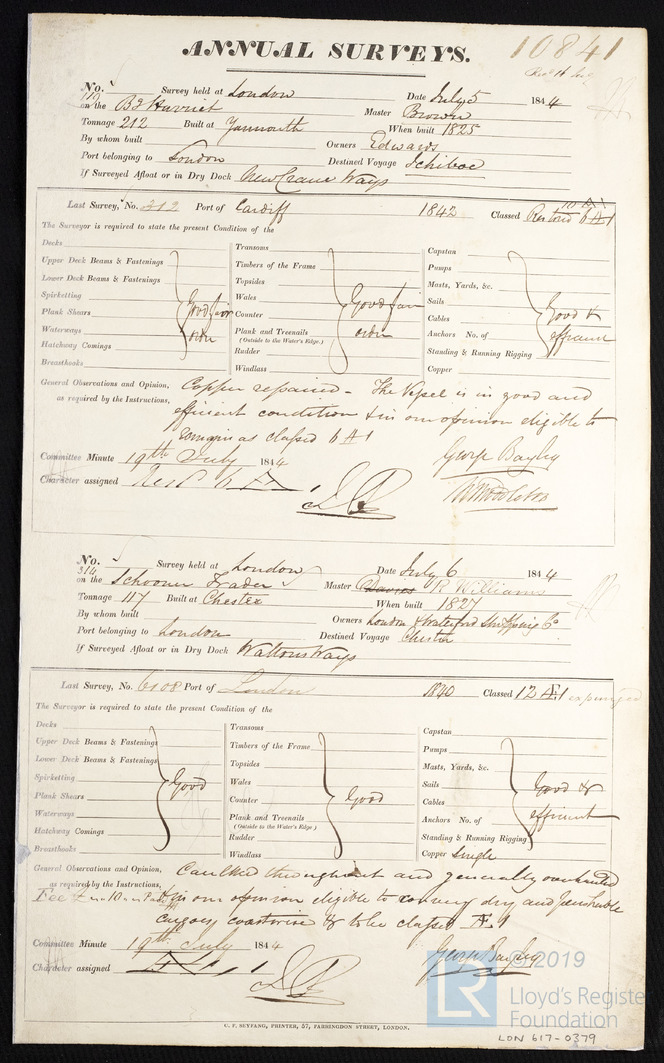 ANNUAL SURVEYS.
10841
No. Survey held at London Date July 5 1844
on the Bg Harriet Master Brown
Tonnage 212 Built at Yarmouth When built 1825
By whom built Owners Edwards
Port belonging to London Destined Voyage Ichiboe
If Surveyed Afloat or in Dry Dock New Crane Ways
Last Survey, No. 312 Port of Cardiff 1842 Classed Restored 6 A 1
The Surveyor is required to state the present Condition of the
Decks
Upper Deck Beams & Fastenings
Lower Deck Beams & Fastenings
Spirketting
Plank Shears
Waterways
Hatchway Comings
Breasthooks
Good fair order
Transoms
Timbers of the Frame
Topsides
Wales
Counter
Plank and Treenails
(Outside to the Water's Edge.)
Rudder
Windlass
Good fair order
Capstan
Pumps
Masts, Yards, &c.
Sails
Cables
Anchors No. of
Standing & Running Rigging
Copper
Good & efficient
General Observations and Opinion, Copper repaired - The Vessel is in good and
as required by the Instructions, efficient condition & in our opinion eligible to
remain as classed 6 A 1
Committee Minute 19th July 1844 George Bayley
Character assigned
No. 314 Survey held at London Date July 6 1844
on the Schooner Trader Master Davies R Williams
Tonnage 117 Built at Chester When built 1827
By whom built Owners London & Waterford Shipping Co
Port belonging to London Destined Voyage Chester
If Surveyed Afloat or in Dry Dock Waltons Ways
Last Survey, No. 6108 Port of London 1840 Classed 12 Æ 1 expunged
The Surveyor is required to state the present Condition of the
Decks
Upper Deck Beams & Fastenings
Lower Deck Beams & Fastenings
Spirketting
Plank Shears
Waterways
Hatchway Comings
Breasthooks
Good
Transoms
Timbers of the Frame
Topsides
Wales
Counter
Plank and Treenails
(Outside to the Water's Edge.)
Rudder
Windlass
Good
Capstan
Pumps
Masts, Yards, &c.
Sails
Cables
Anchors No. of
Standing & Running Rigging
Copper Single
Good & efficient
General Observations and Opinion, Caulked throughout and generally overhauled
as required by the Instructions, & in our opinion eligible to convey dry and perishable
cargoes coastwise & to be classed Æ 1
Committee Minute 19th July 1844 George Bayley
Character assigned Æ 1
C. F. SEYFANG, PRINTER, 57, FARRINGDON STREET, LONDON.
© 2019
LR Lloyd's Register
Foundation
LON 617-0379